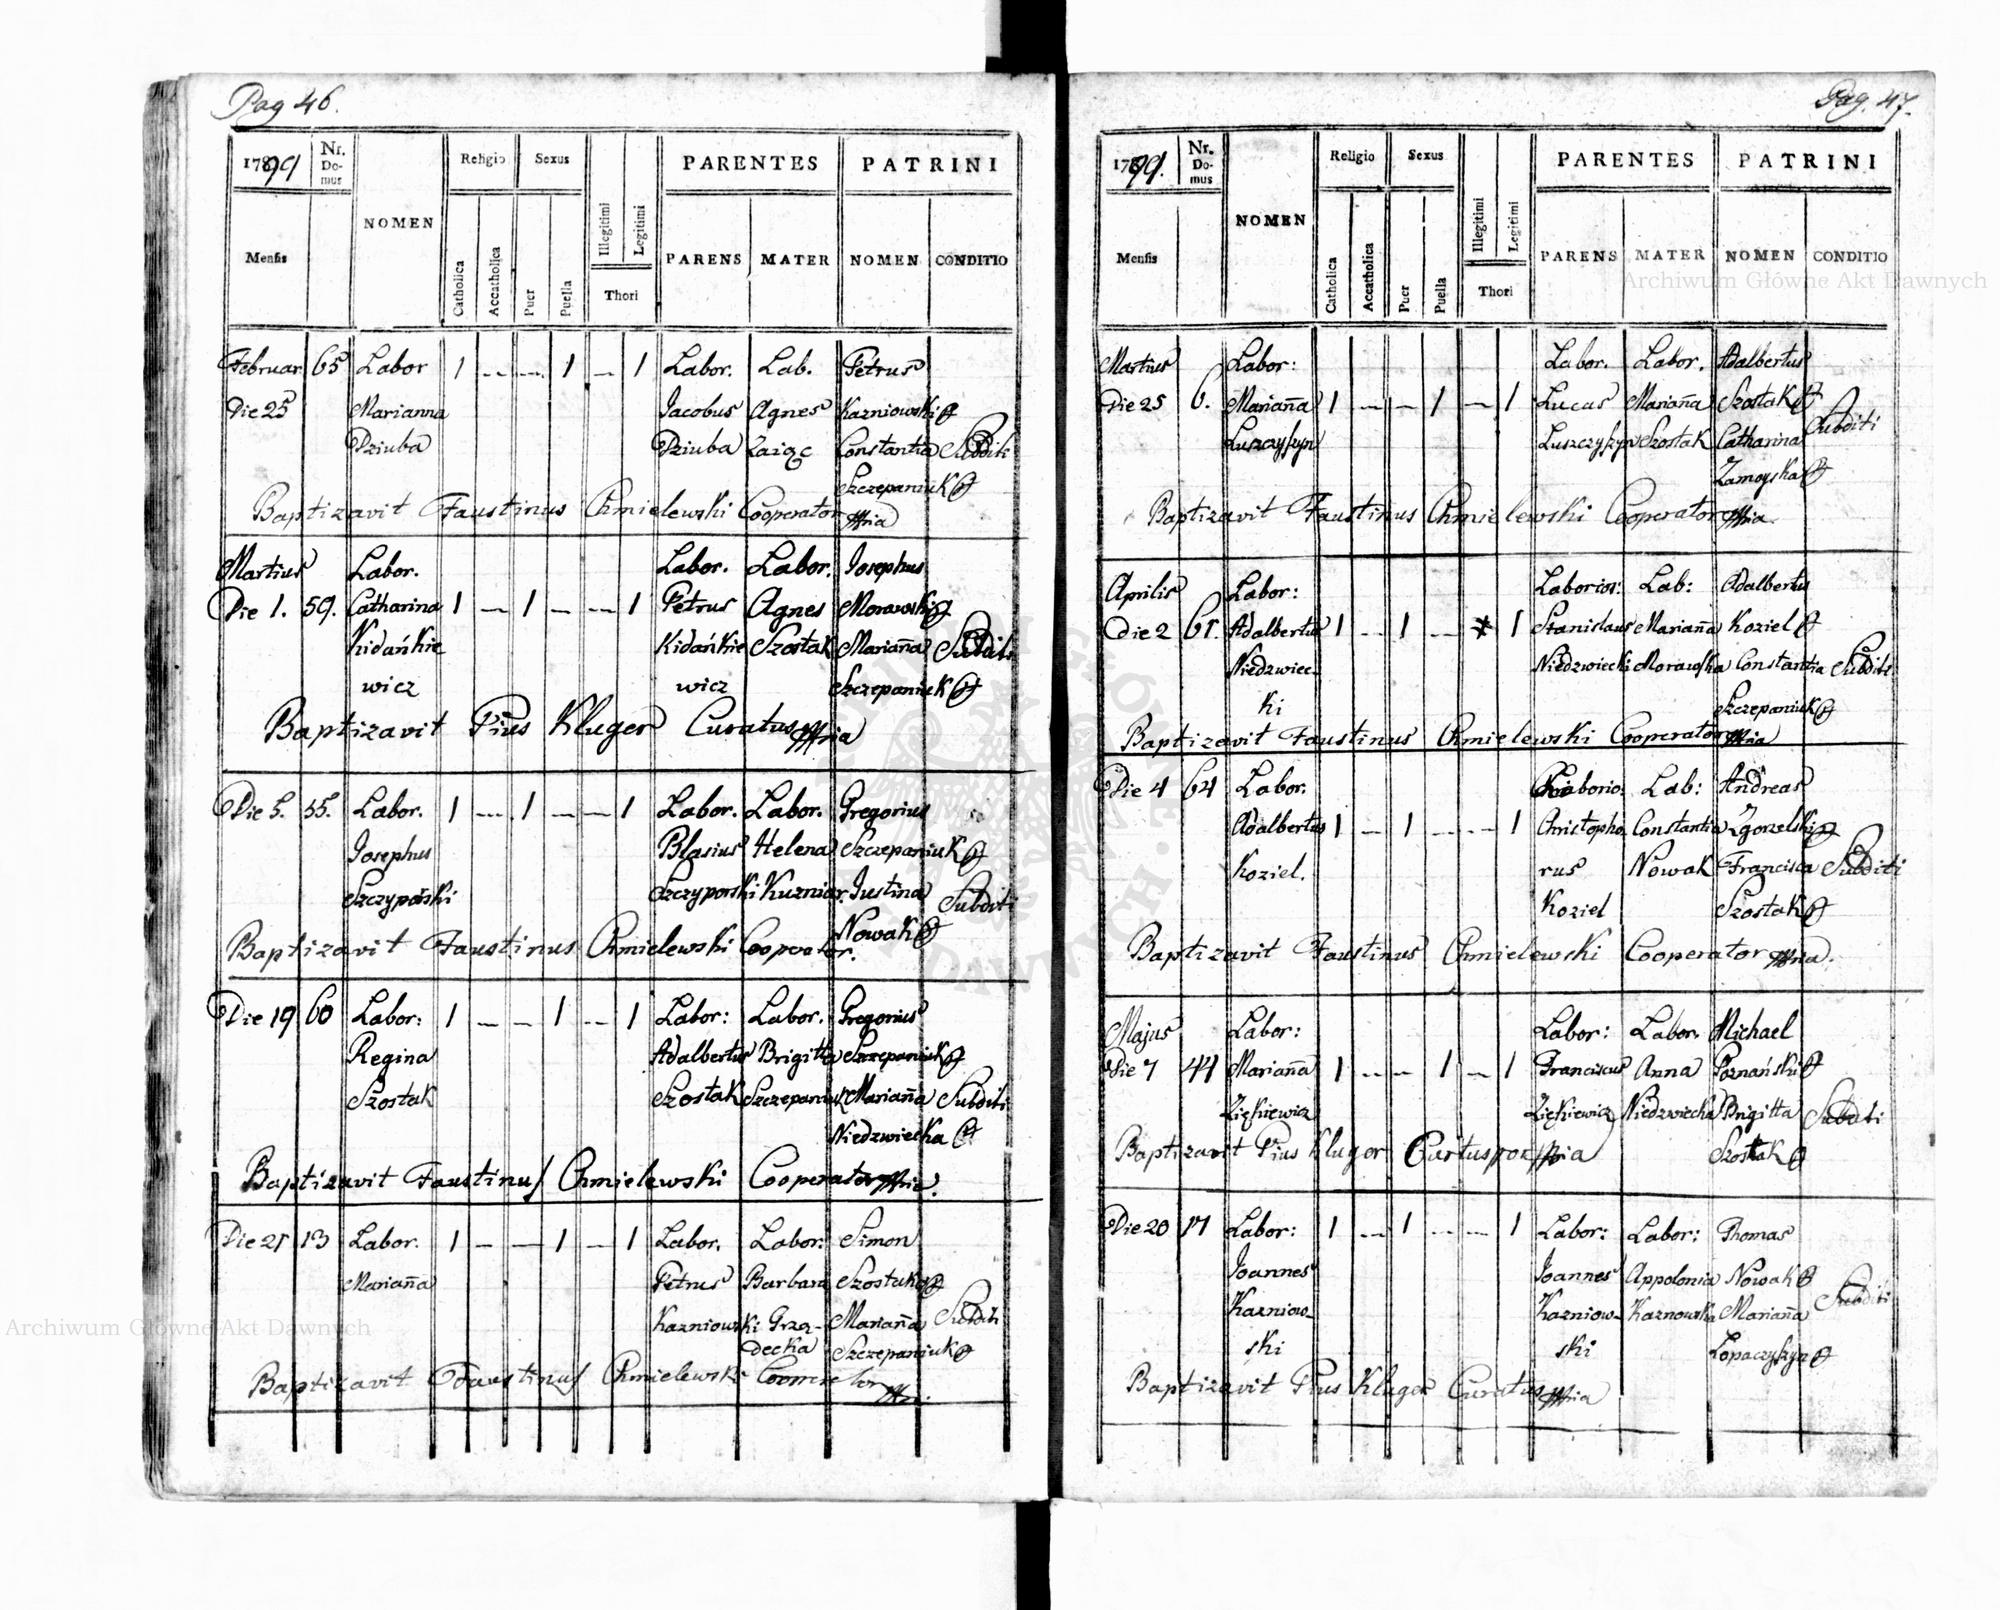 Pag 46.
1799
Nr. Do- mus
NOMEN
Religio
Sexus
Illegitimi
Legitimi
PARENTES
PATRINI
Mensis
Catholica
Accatholica
Puer
Puella
Thori
PARENS
MATER
NOMEN
CONDITIO
Februar. 65 Labor 1 — — 1 — 1 Labor. Lab. Petrus
Die 25 Marianna Jacobus Agnes Kazniowski
Dziuba Dziuba Zaiąc Constantia Subditi
Szczepaniuk
Baptizavit Faustinus Chmielewski Cooperator mpria
Martius Labor. Labor. Labor. Josephus
Die 1. 59. Catharina 1 — 1 — — 1 Petrus Agnes Morawski
Kidańkie Kidańkie Szostak Mariana Subditi
wicz wicz Szczepaniuk
Baptizavit Pius Kluger Curatus mpria
Die 5. 55. Labor. 1 — 1 — — 1 Labor. Labor. Gregorius
Josephus Blasius Helena Szczepaniuk
Szczyporski Szczyporski Kuzniar. Justina Subditi
Nowak
Baptizavit Faustinus Chmielewski Cooperator.
Die 19 60 Labor: 1 — — 1 — 1 Labor: Labor. Gregorius
Regina Adalbertus Brigitta Szczepaniuk
Szostak Szostak Szczepaniuk Mariana Subditi
Niedzwiecka
Baptizavit Faustinus Chmielewski Cooperator mpria.
Die 21 13 Labor. 1 — — 1 — 1 Labor. Labor: Simon
Mariana Petrus Barbara Szostak
Kazniowski Grzą- Mariana Subditi
decka Szczepaniuk
Baptizavit Faustinus Chmielewski Cooperator mpria
Pag. 47.
1799.
Nr. Do- mus
NOMEN
Religio
Sexus
Illegitimi
Legitimi
PARENTES
PATRINI
Mensis
Catholica
Accatholica
Puer
Puella
Thori
PARENS
MATER
NOMEN
CONDITIO
Martius Labor: Labor. Labor. Adalbertus
Die 25 6. Mariana 1 — — 1 — 1 Lucas Mariana Szostak
Luszczyszyn Luszczyszyn Szostak Catharina Subditi
Zamoyska
Baptizavit Faustinus Chmielewski Cooperator mpria
Aprilis Labor: Laborios: Lab: Adalbertus
Die 2 61. Adalbertus 1 — 1 — 1 Stanislaus Mariana Koziel
Niedzwiec- Niedzwiecki Morawska Constantia Subditi
ki Szczepaniuk
Baptizavit Faustinus Chmielewski Cooperator mpria
Die 4 64 Labor. Laborio. Lab: Andreas
Adalbertus 1 — 1 — — 1 Christopho. Constantia Zgorzelski
Koziel. rus Nowak Francisca Subditi
Koziel Szostak
Baptizavit Faustinus Chmielewski Cooperator mpria.
Majus Labor: Labor: Labor. Michael
Die 7 44 Mariana 1 — — 1 — 1 Franciscus Anna Poznański
Ziękiewicz Ziękiewicz Niedzwiecka Brigitta Subditi
Baptizavit Pius Kluger mpria Szostak
Die 20 17 Labor: 1 — 1 — — 1 Labor: Labor: Thomas
Joannes Joannes Appolonia Nowak
Kazniow- Kazniow- Kaznowska Mariana Subditi
ski ski Lopaczyszyn
Baptizavit Pius Kluger Curatus mpria
Archiwum Główne Akt Dawnych
Archiwum Główne Akt Dawnych